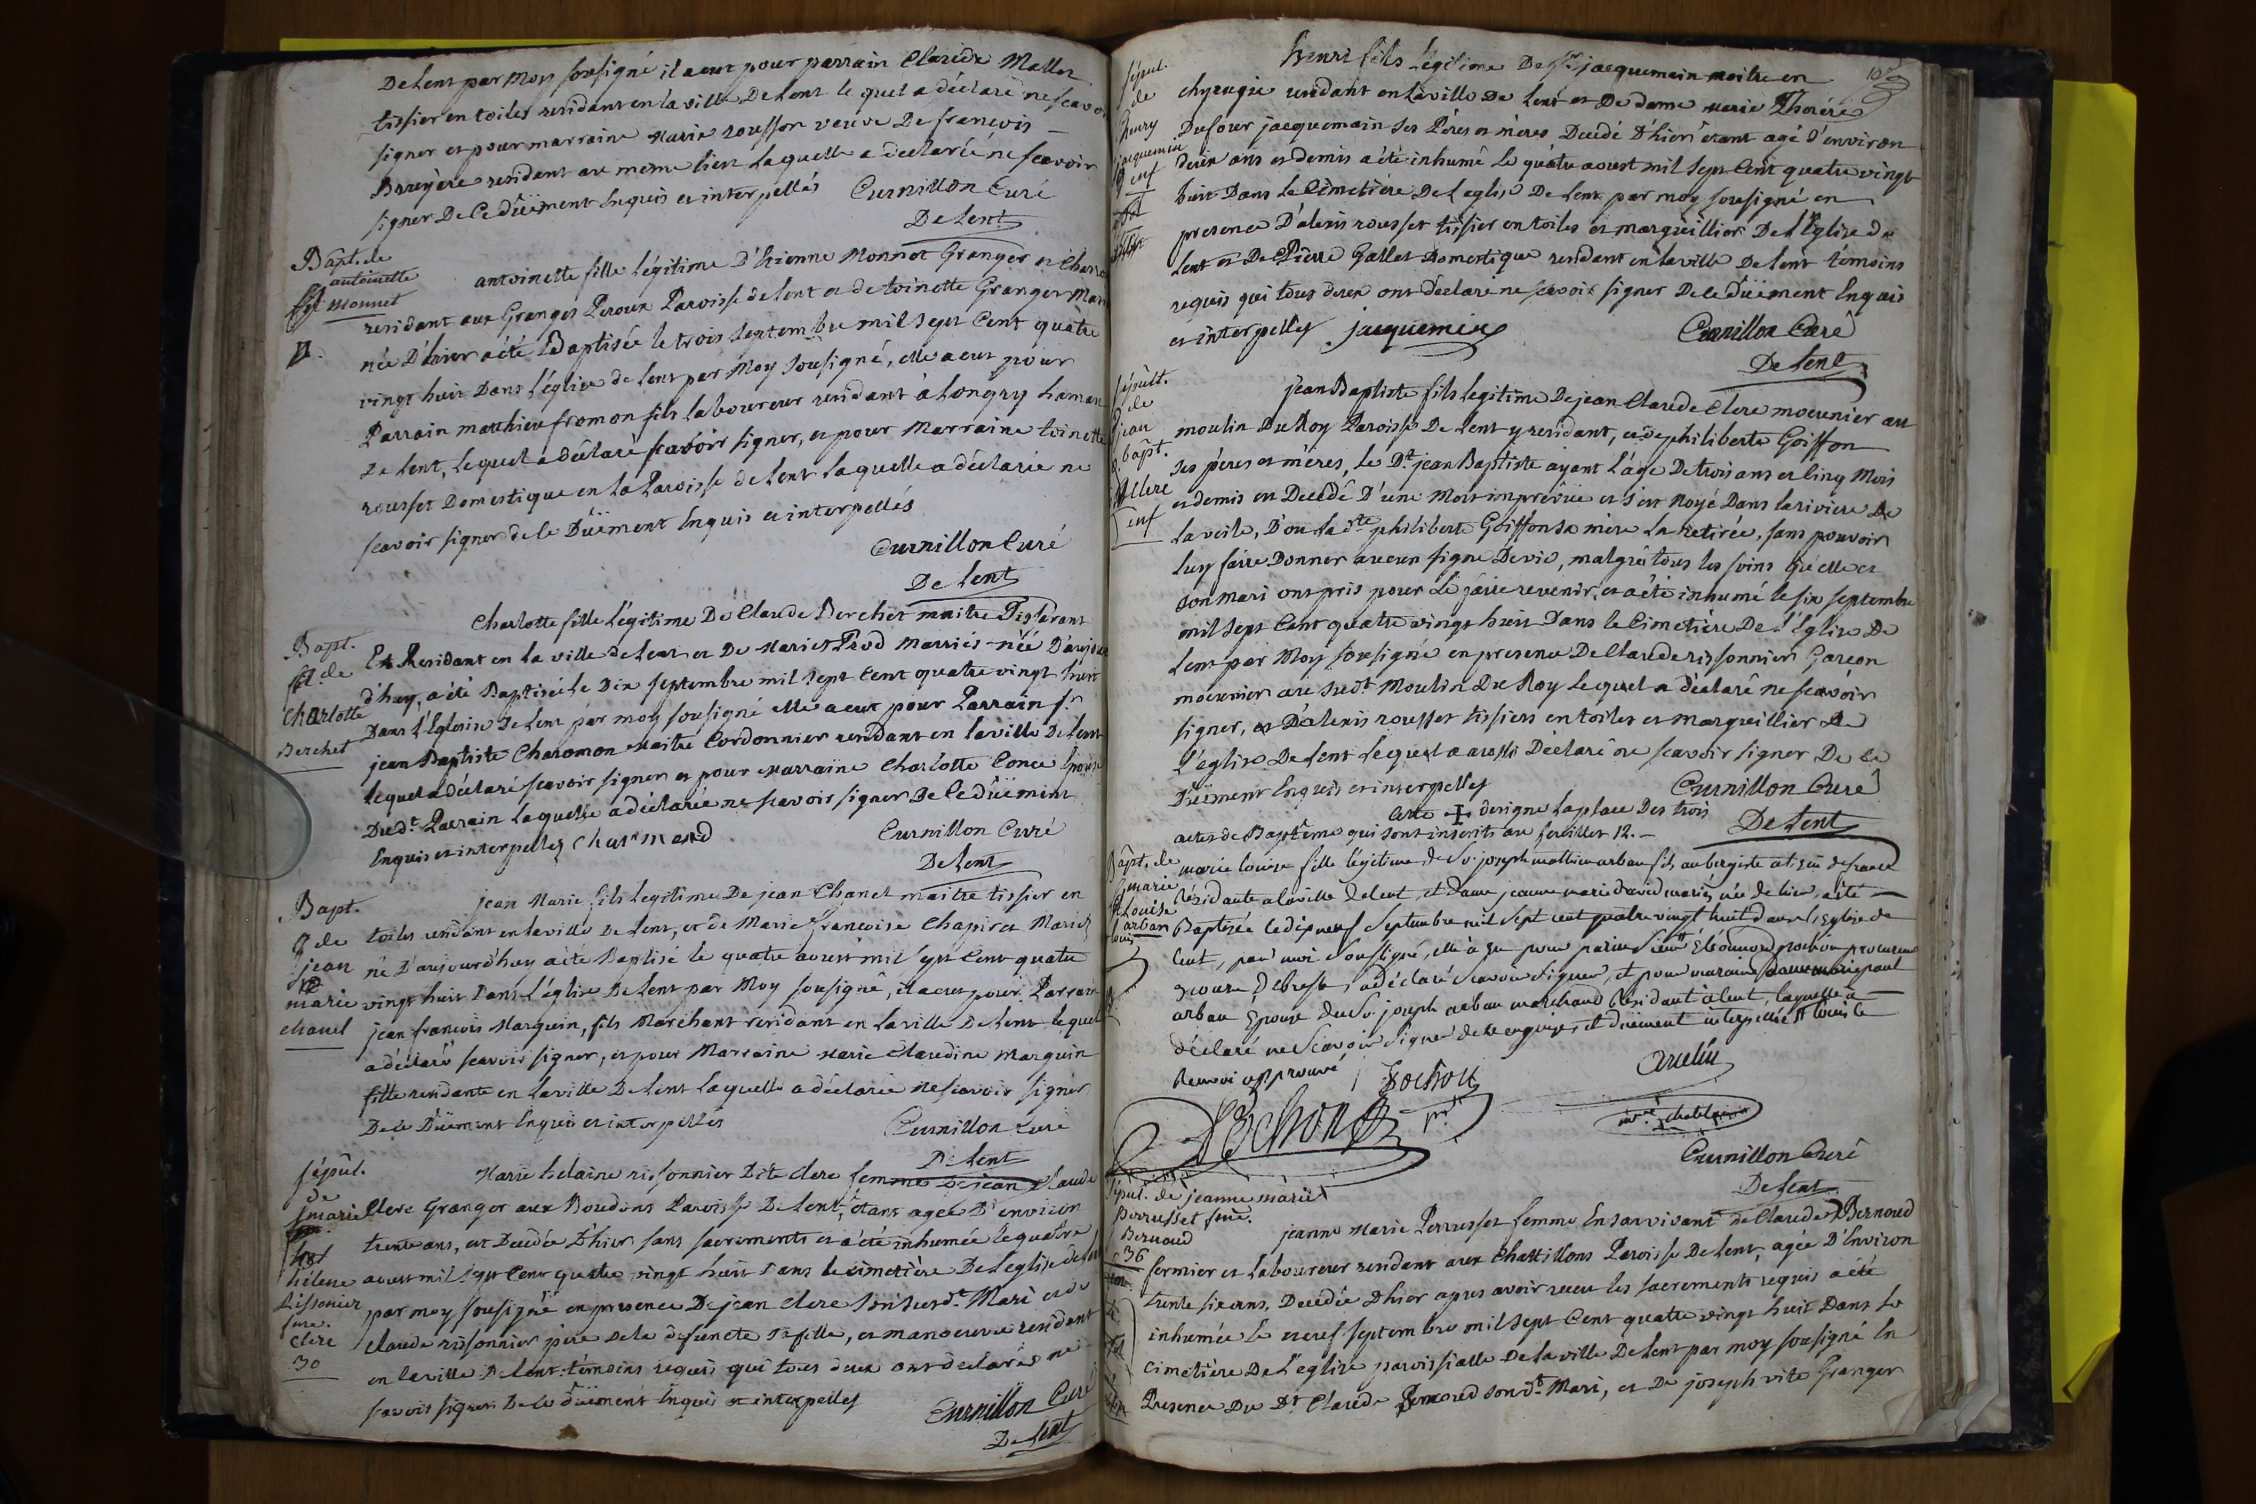 De Lent par Moy sousigné il a eut pour parrain Claude Mallet
tissier en toiles residant en la ville De Lent le quel a déclaré ne scavoir
signer et pour marraine Marie rousson veuve De francois
Bruyère residant au meme lieu laquelle a declarée ne scavoir
signer De Ce düement Enquis et interpellés Curnillon Curé
De Lent
Bapt. de
antoinette
Monnet
antoinette fille légitime D'Etienne Monnot Granger et
residant aux Granges Peroux Paroisse de Lent et de toinette Granger
née D'hier a été Baptisée le trois septembre mil sept Cent quatre
vingt huit Dans l'église de Lent par Moy sousigné, elle a eut pour
Parrain matthieu fromon fils laboureur residant à Longry hamau
De Lent, le quel a déclaré scavoir signer, et pour Marraine toinette
rousset Domestique en la Paroisse de Lent laquelle a déclarée ne
scavoir signer de Ce Düement Enquis et interpellés
Curnillon Curé
De Lent
Bapt.
de
Charlotte
Berchet
Charlotte fille légitime De Claude Berchet maitre Tisserant
Et Residant en la ville de Lent et De Marie Prod Marriés née D'aujour
d'huy, a été Baptisée le Dix septembre mil sept Cent quatre vingt huit
Dans L'Egloise De Lent par moy sousigné elle a eut pour Parrain sr.
jean Baptiste Charomon Maitre Cordonnier residant en la ville De Lent
lequel a déclaré scavoir signer et pour Marraine Charlotte Conce Epouse
Dudt. Parrain laquelle a déclarée ne scavoir signer De Ce düement
Enquis et interpellez Curnillon Curé
De Lent
Bapt.
de
jean
marie
chanel
jean Marie fils legitime De jean Chanel maitre tissier en
toiles residant en la ville De Lent, et de Marie francoise Chapiret Mariez
né D'aujourd'huy a été Baptisé le quatre aoust mil sept Cent quatre
vingt huit Dans L'église De Lent par Moy sousigné, il a eut pour Parrain
jean francois Marguin, fils Marchant residant en la ville De Lent lequel
a déclaré scavoir signer, et pour Marraine Marie Claudine Marguin
fille residante en la ville De Lent laquelle a déclarée ne scavoir signer
De Ce Düement Enquis et interpellés Curnillon Curé
De Lent
sépul.
de
marie
hélene
Rissonier
fme.
Clere
30
Marie helaine rissonnier Dite Clere femme De jean Claude
Clere Granger aux Boudons Paroisse De Lent, étant agée D'environ
trente ans, est Decedée D'hier sans sacrements et a été inhumée le quatre
aoust mil sept Cent quatre vingt huit Dans le cimetière De L'eglise de Lent
par moy sousigné en presence De jean Clere son susdt. Mari et de
Claude rissonnier père De la defuncte sa fille, et manoeuvre residant
en la ville De Lent témoins requis qui tous deux ont declarés ne
scavoir signer De Ce düement Enquis et interpellez
Curnillon Curé
De Lent
sépul.
de
henry
jacquemin
enf
henri fils légitime De Sr. jacquemain maitre en
chyrugie residant en la ville De Lent et De dame Marie Thérése
Dufour jacquemain ses Péres et méres Decedé D'hier étant agé d'environ
deux ans et demis a été inhumé le quatre aoust mil sept Cent quatre vingt
huit Dans le Cimetière De l'eglise De Lent par moy sousigné en
presence D'alexis rousset tissier en toiles et marguillier De l'Eglise de
Lent et De Pierre Gallet Domestique residant en la ville De Lent témoins
requis qui tous deux ont déclaré ne scavoir signer De Ce düement Enquis
et interpellez jacquemin Curnillon Curé
De Lent
sépult.
de
jean
bapt.
Clere
enf
jean Baptiste fils legitime De jean Claude Clere moeunier au
moulin Du Roy Paroisse De Lent y residant, et de philiberte Goiffon
ses péres et méres, le Dt. jean Baptiste ayant l'âge De trois ans et cinq Mois
et demis est Decedé D'une Mort imprévüe et s'est Noyé Dans la riviere De
la veile, D'ou la dte. philiberte Goiffon sa mére la retirée, sans pouvoir
luy faire Donner aucun signe De vie, malgré tous les soins qu'elle et
son mari ont pris pour le faire revenir, et a été inhumé le six septembre
mil sept Cent quatre vingt huit Dans le Cimetière De l'église De
Lent par Moy sousigné en presence De Claude rissonnier Garcon
moeunier au susdt. Moulin Du Roy lequel a déclaré ne scavoir
signer, et D'alexis rousset tissiers en toiles et marguillier De
l'église De Lent lequel a aussi Déclaré ne scavoir signer De Ce
Düement Enquis et interpellez Curnillon Curé
Cette + designe la place Des trois
actes de Baptême qui sont inscrits au feuillet 12. De Lent
Bapt. de
marie
Louise
arban
marie louise fille légitime de Sr. joseph mathieu arban fils aubergiste
Résidante a la ville de Lent, et Dame jeanne marie david mariez, née de hier, a été
Baptizée le dix neuf Septembre mil sept cent quatre vingt huit dans l'Eglise de
Lent, par moi Sousigné, elle à eu pour parrin Sieur Rochon procureur
, a déclaré scavoir signer, et pour maraine
arban Epouse du Sr. joseph arban marchand Résidant à Lent, laquelle a
déclaré ne Scavoir Signer de ce enquise, et düement interpellée
Renvoi approuvé Rochon
Curnillon Curé
De Lent
sépul. de jeanne marie
Perrusset fme.
Bernoud
36
jeanne Marie Perrusset femme En survivant de Claude Bernoud
fermier et laboureur residant aux Chattillons Paroisse De Lent, agée D'Environ
trente six ans, Decedée D'hier apres avoir receu les sacrements requis a été
inhumée le neuf septembre mil sept Cent quatre vingt huit Dans le
cimetière De L'eglise paroissialle De la ville De Lent par moy sousigné En
Presence Du Dt. Claude Bernoud son dt. Mari, et De joseph vite Granger